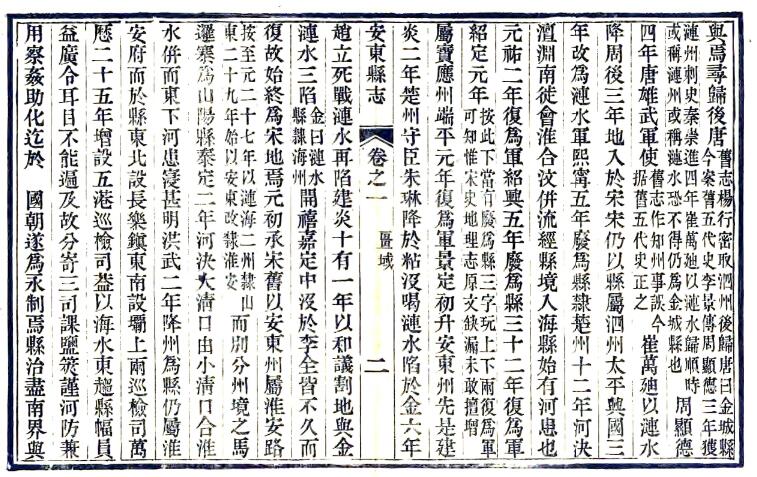 與焉尋歸後唐舊志楊行密取泗州後歸唐曰金城縣今案舊五代史李景傳周顯德三年獲
漣州刺史秦崇進四年崔萬廸以漣水歸順時或稱漣州或稱漣水恐不得仍為金城縣也周顯德
四年唐雄武軍使舊志作知州事誤今據舊五代史正之崔萬廸以漣水
降周後三年地入於宋宋仍以縣屬泗州太平興國三
年改為漣水軍熙寧五年廢為縣隸楚州十二年河決
澶淵南徙會淮合汶併流經縣境入海縣始有河患也
元祐二年復為軍紹興五年廢為縣三十二年復為軍
紹定元年按此下當有廢為縣三字玩上下兩復為軍可知惟宋史地理志原文缺漏未敢擅增
屬寶應州端平元年復為軍景定初升安東州先是建
炎二年楚州守臣朱琳降於粘沒喝漣水陷於金六年
安東縣志 卷之一 疆域 二
趙立死戰漣水再陷建炎十有一年以和議割地與金
漣水三陷金曰漣水縣隸海州開禧嘉定中沒於李全皆不久而
復故始終為宋地焉元初承宋舊以安東州屬淮安路
按至元二十七年以漣海二州隸山東二十九年始以安東改隸淮安而別分州境之馬
邏寨為山陽縣泰定二年河決大清口由小清口合淮
水併而東下河患寖甚明洪武二年降州為縣仍屬淮
安府而於縣東北設長樂鎮東南設壩上兩巡檢司萬
歷二十五年增設五港巡檢司蓋以海水東趨縣幅員
益廣令耳目不能遍及故分寄三司課鹽筴謹河防兼
用察姦助化迄於 國朝遂為永制焉縣治盡南界與